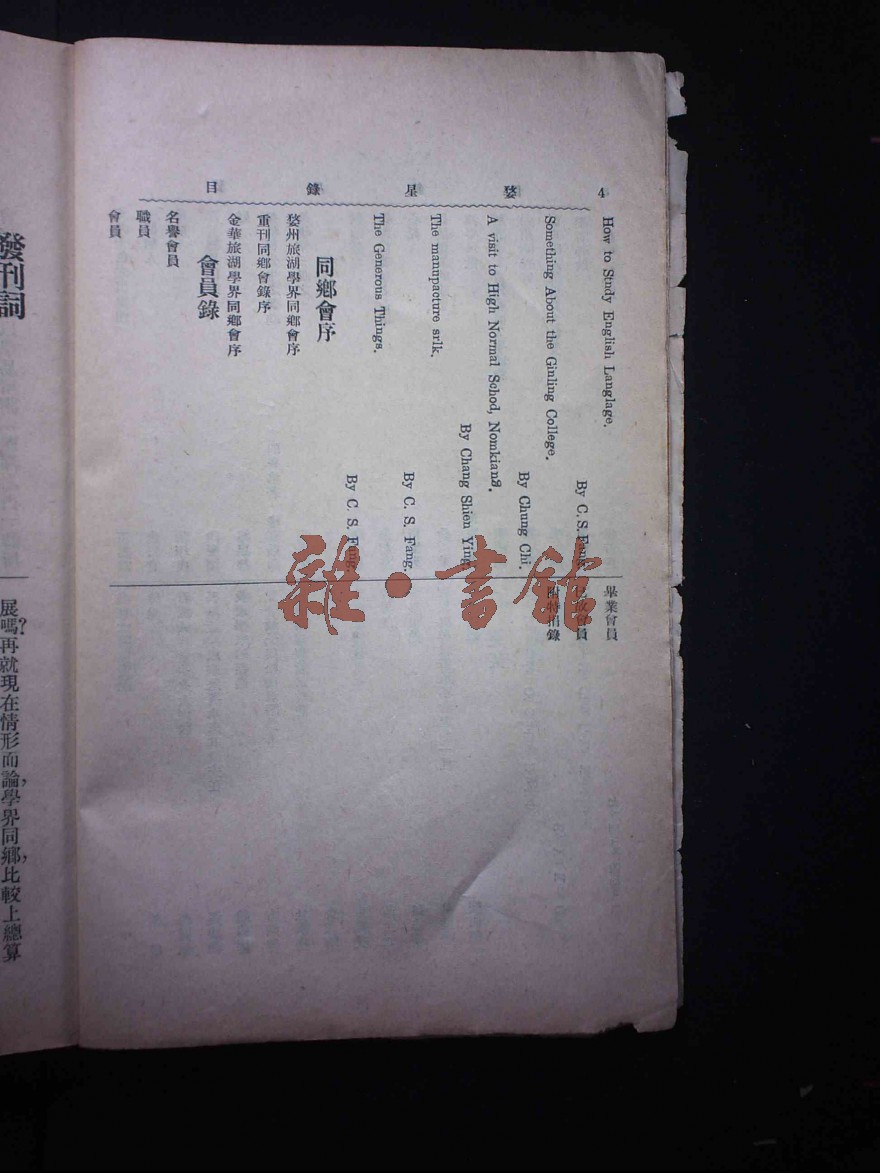 4
婺星錄目
How to Study English Langlage.
By C. S. Fang.
Something About the Ginling College.
By Chung Chi.
A visit to High Normal Schod, Nomkiang.
By Chang Shien Ying
The manupacture srlk.
By C. S. Fang.
The Generous Things.
By C. S. Fang.
同鄉會序
婺州旅湖學界同鄉會序
重刊同鄉會錄序
金華旅湖學界同鄉會序
會員錄
名譽會員
職員
會員
畢業會員
已故會員
附特捐錄
發刊詞
展嗎?再就現在情形而論,學界同鄉,比較上總算
雜·書館